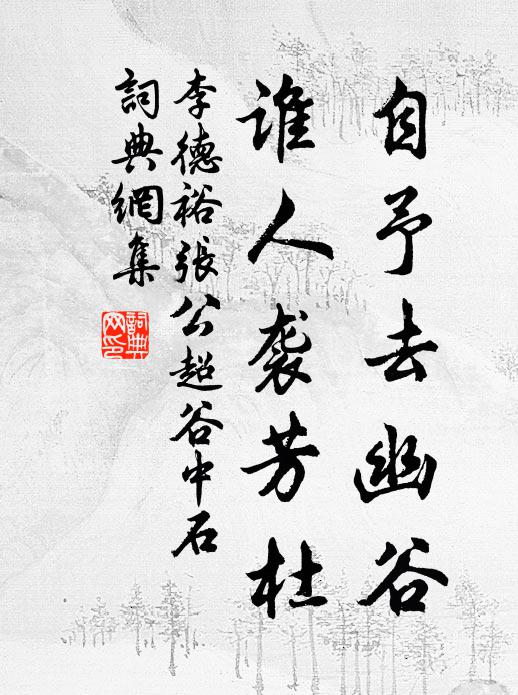 自予去幽谷
谁人袭芳杜
李德裕张公超谷中石
词典网集
词典网印